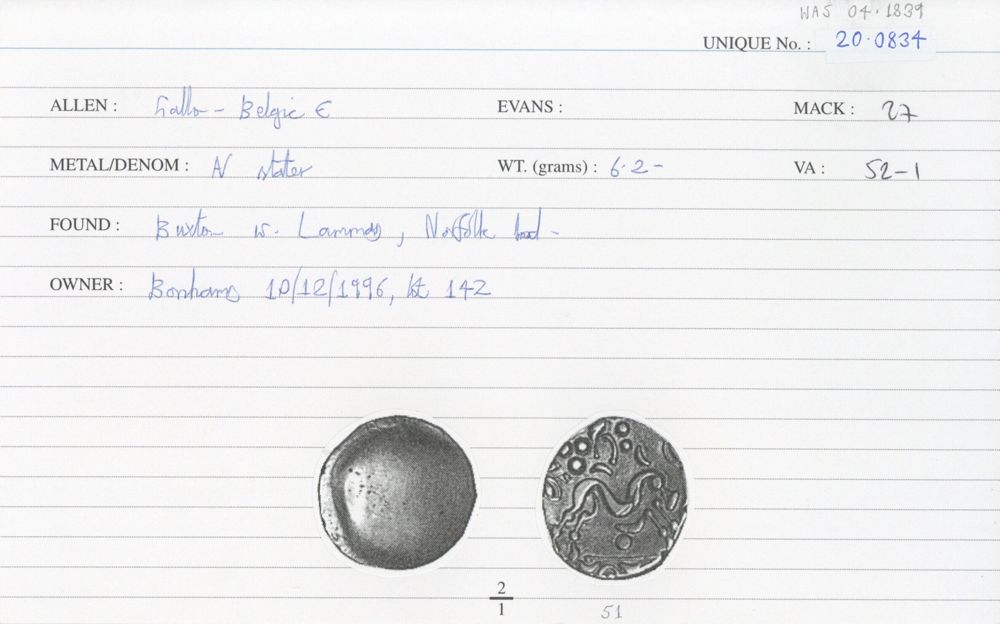 WAS 04.1839
UNIQUE No. : 20.0834
ALLEN : Gallo - Belgic E EVANS : MACK : 27
METAL/DENOM : AV stater WT. (grams) : 6.2- VA : 52-1
FOUND : Buxton w. Lammas, Norfolk hoard -
OWNER : Bonhams 10/12/1996, lot 142
2
1
51